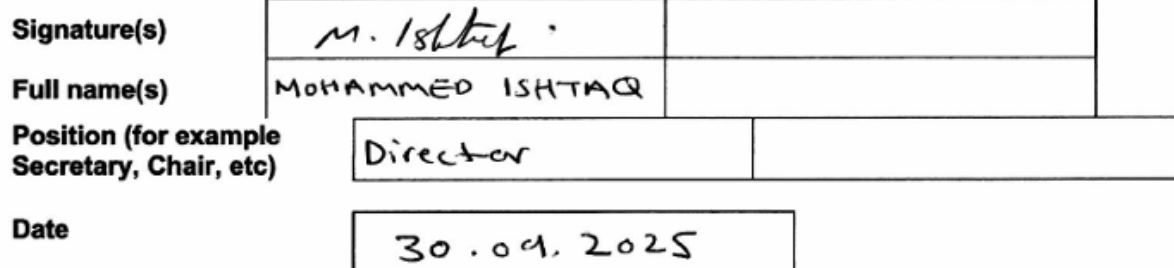 Signature(s) M. Ishtaq .
Full name(s) MOHAMMED ISHTAQ
Position (for example
Secretary, Chair, etc) Director
Date 30.09.2025